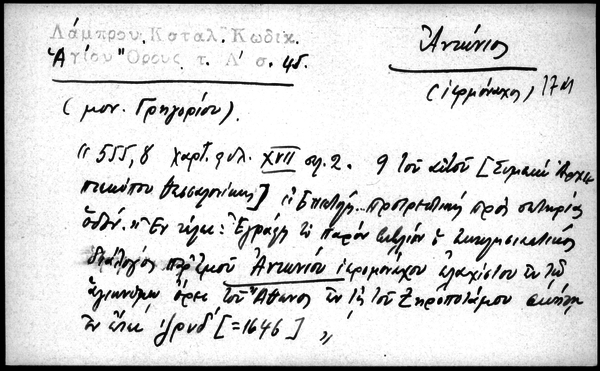 Λάμπρου Καταλ. Κωδίκ.
Ἁγίου Ὄρους τ. Α' σ. 45.
Ἀντώνιος
(ἱερομόναχος) 1701
(μον. Γρηγορίου).
"555, 8 χαρτ. φυλ. XVII σελ. 2. 9 Τοῦ αὐτοῦ [Συμεὼν Ἀρχιε
πισκόπου Θεσσαλονίκης] προτρεπτικὴ πρὸς σωτηρίας
ὁδόν. " Ἐν τέλει: Ἐγράφη τὸ παρὸν βιβλίον ὁ
διάλογος παρ' ἐμοῦ Ἀντωνίου ἱερομονάχου ἐλαχίστου ἐν τῷ
ἁγιωνύμῳ ὄρει τοῦ Ἄθωνος ἐν τῇ τοῦ Ξηροποτάμου
ἐν ἔτει ͵ζρνδ' [=1646] "